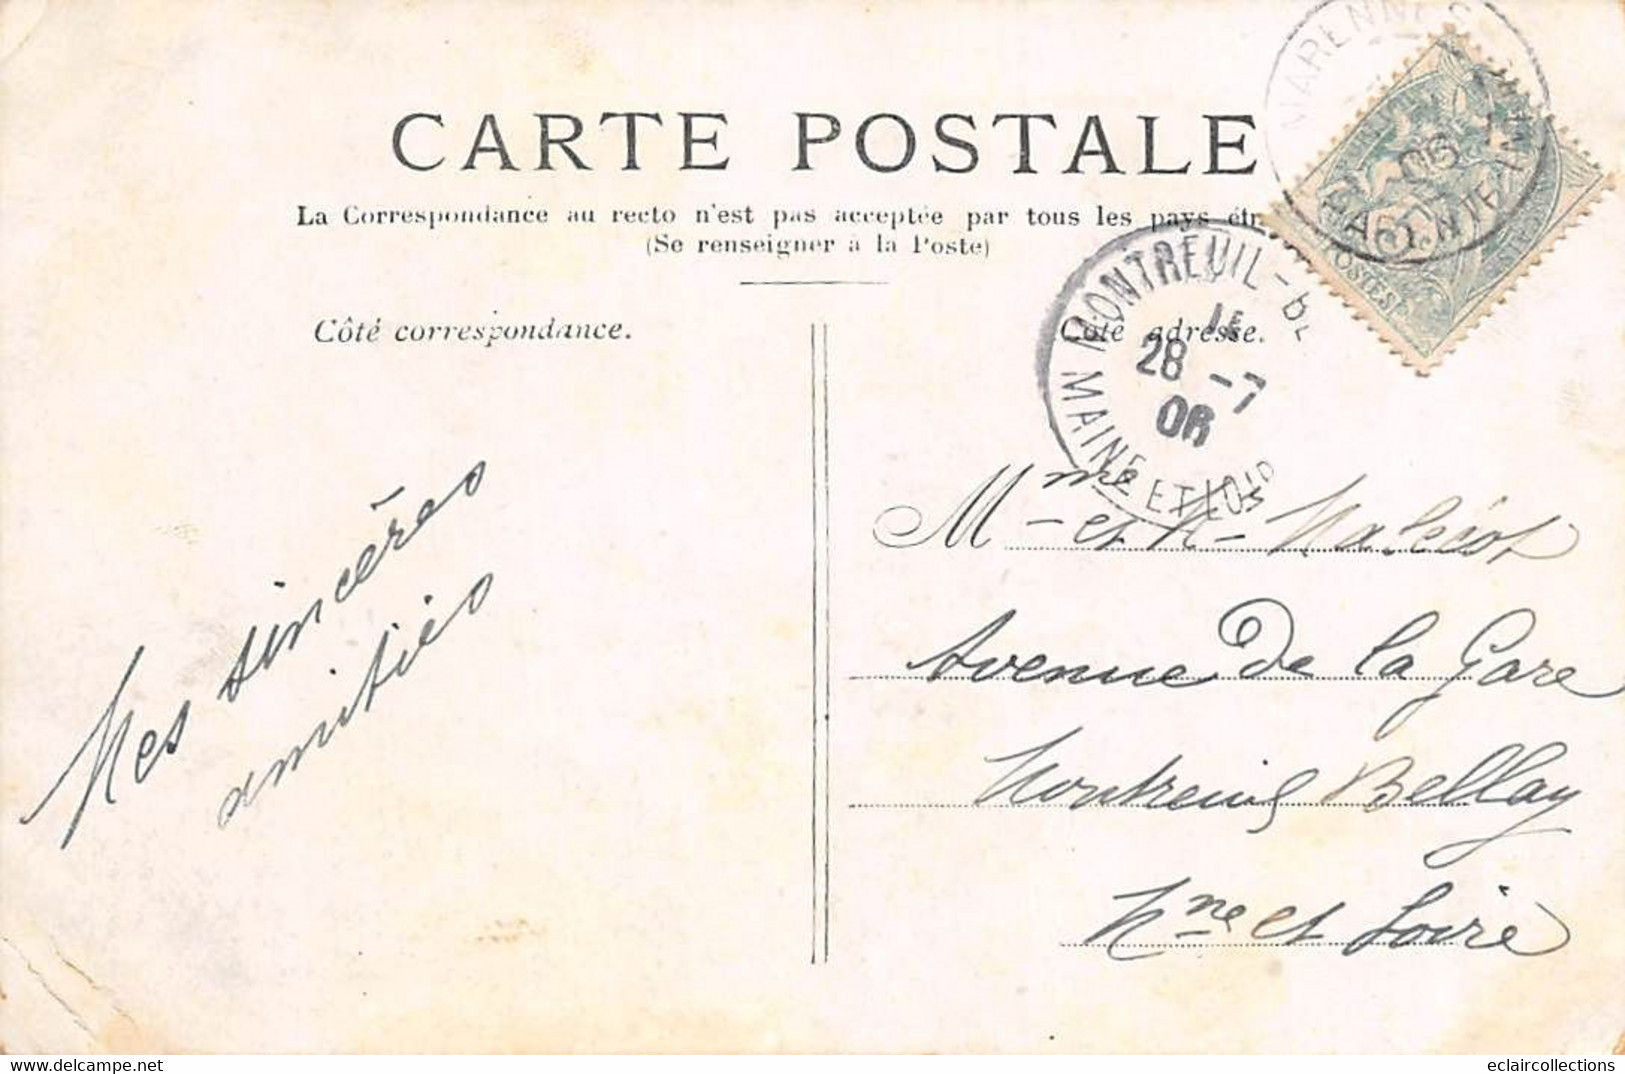 CARTE POSTALE
La Correspondance au recto n'est pas acceptée par tous les pays étr
(Se renseigner à la Poste)
Côté correspondance.
Côté adresse.
MARENNES
06
CHARENTE INF
POSTES
MONTREUIL-B
28 -7
06
MAINE ET LOIR
Mes sincères
amitiés
Mme et M.
Avenue De la Gare
Montreuil Bellay
Mne et Loire
delcampe.net
eclaircollections